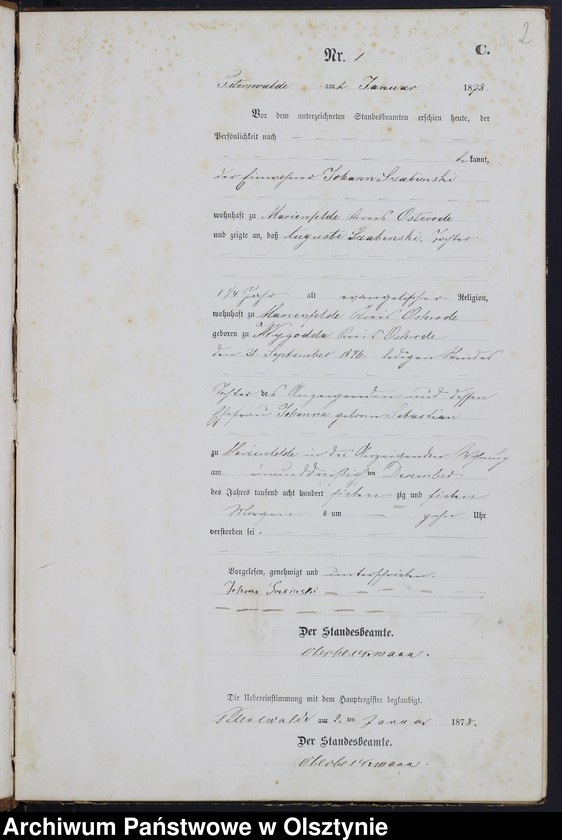 2
Nr. 1 C.
Peterswalde am 2 Januar 1878.
Vor dem unterzeichneten Standesbeamten erschien heute, der
Persönlichkeit nach
bekannt,
der Einwohner Johann Szabinski
wohnhaft zu Marienfelde Kreis Osterode
und zeigte an, daß Auguste Szabinski, Tochter
1 1/4 Jahr alt evangelischer Religion,
wohnhaft zu Marienfelde Kreis Osterode
geboren zu Kreis Osterode
den 21. September 1876. ledigen Standes
Tochter des Anzeigenden und dessen
Ehefrau Johanna geborne Sebastian
zu Marienfelde in des Anzeigenden Wohnung
am einunddreißigsten Dezember
des Jahres tausend acht hundert siebenzig und sieben
Morgens um zehn Uhr
verstorben sei.
Vorgelesen, genehmigt und unterschrieben.
Der Standesbeamte.
Oberbeckmann.
Die Uebereinstimmung mit dem Hauptregister beglaubigt.
Peterswalde am 2. ten Januar 1878.
Der Standesbeamte.
Oberbeckmann.
Archiwum Państwowe w Olsztynie